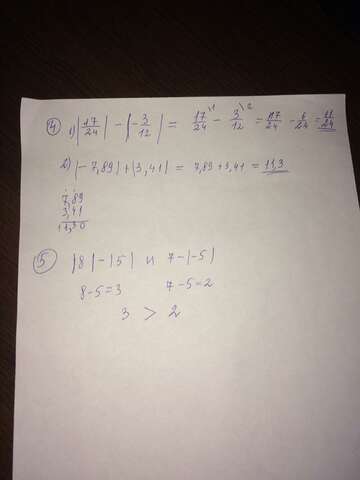 ④ 1) |17/24| − |−3/12| = 17/24\1 − 3/12\2 = 17/24 − 6/24 = 11/24
2) |−7,89| + |3,41| = 7,89 + 3,41 = 11,3
7,89
3,41
11,30
⑤ |8| − |5| и 7 − |−5|
8−5=3 7−5=2
3 > 2